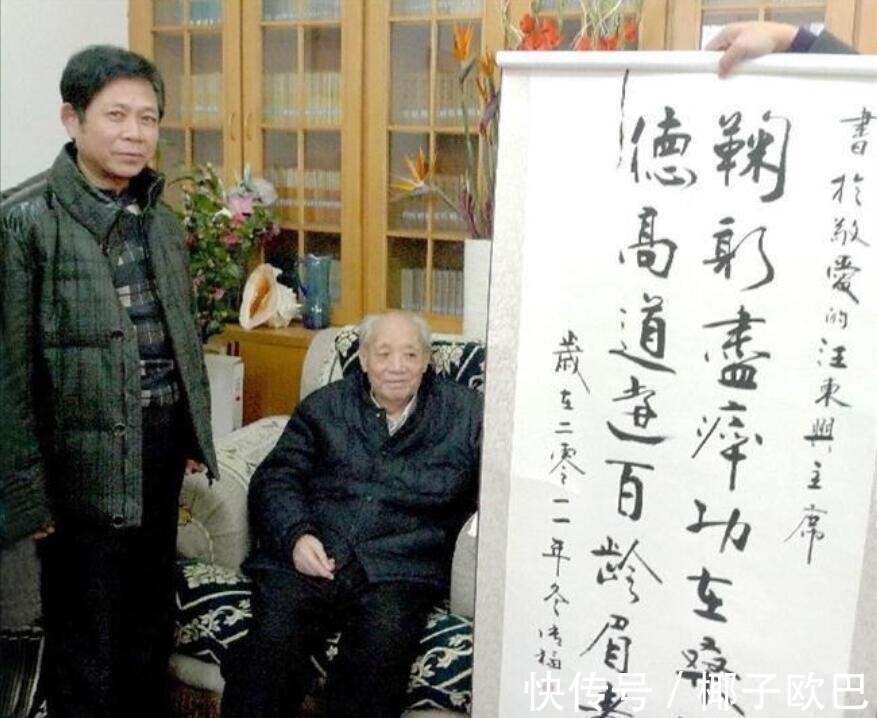 書於敬愛的汪東興主席
鞠躬盡瘁功在
德高道達百龄眉
歲在二零一一年冬
快传号 / 椰子欧巴